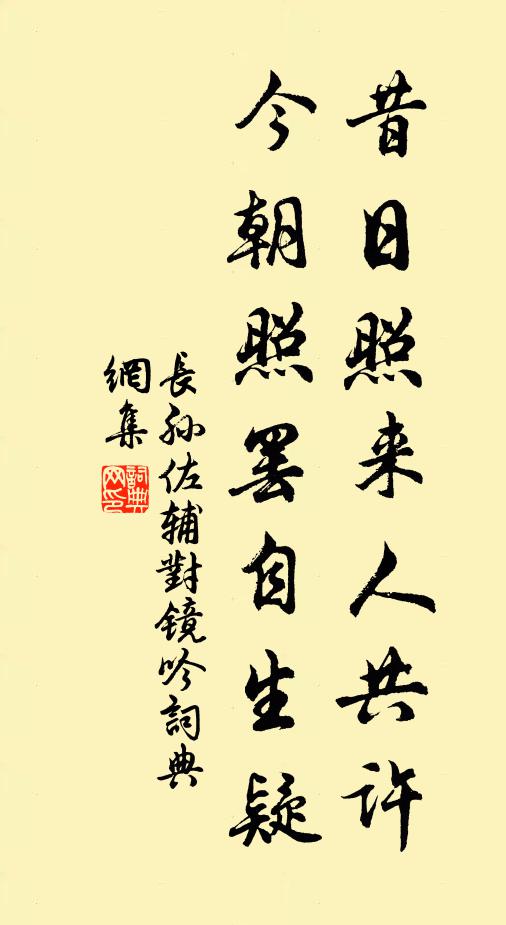 昔日照来人共許
今朝照罢自生疑
長孙佐辅對镜吟詞典
網集
詞典網印